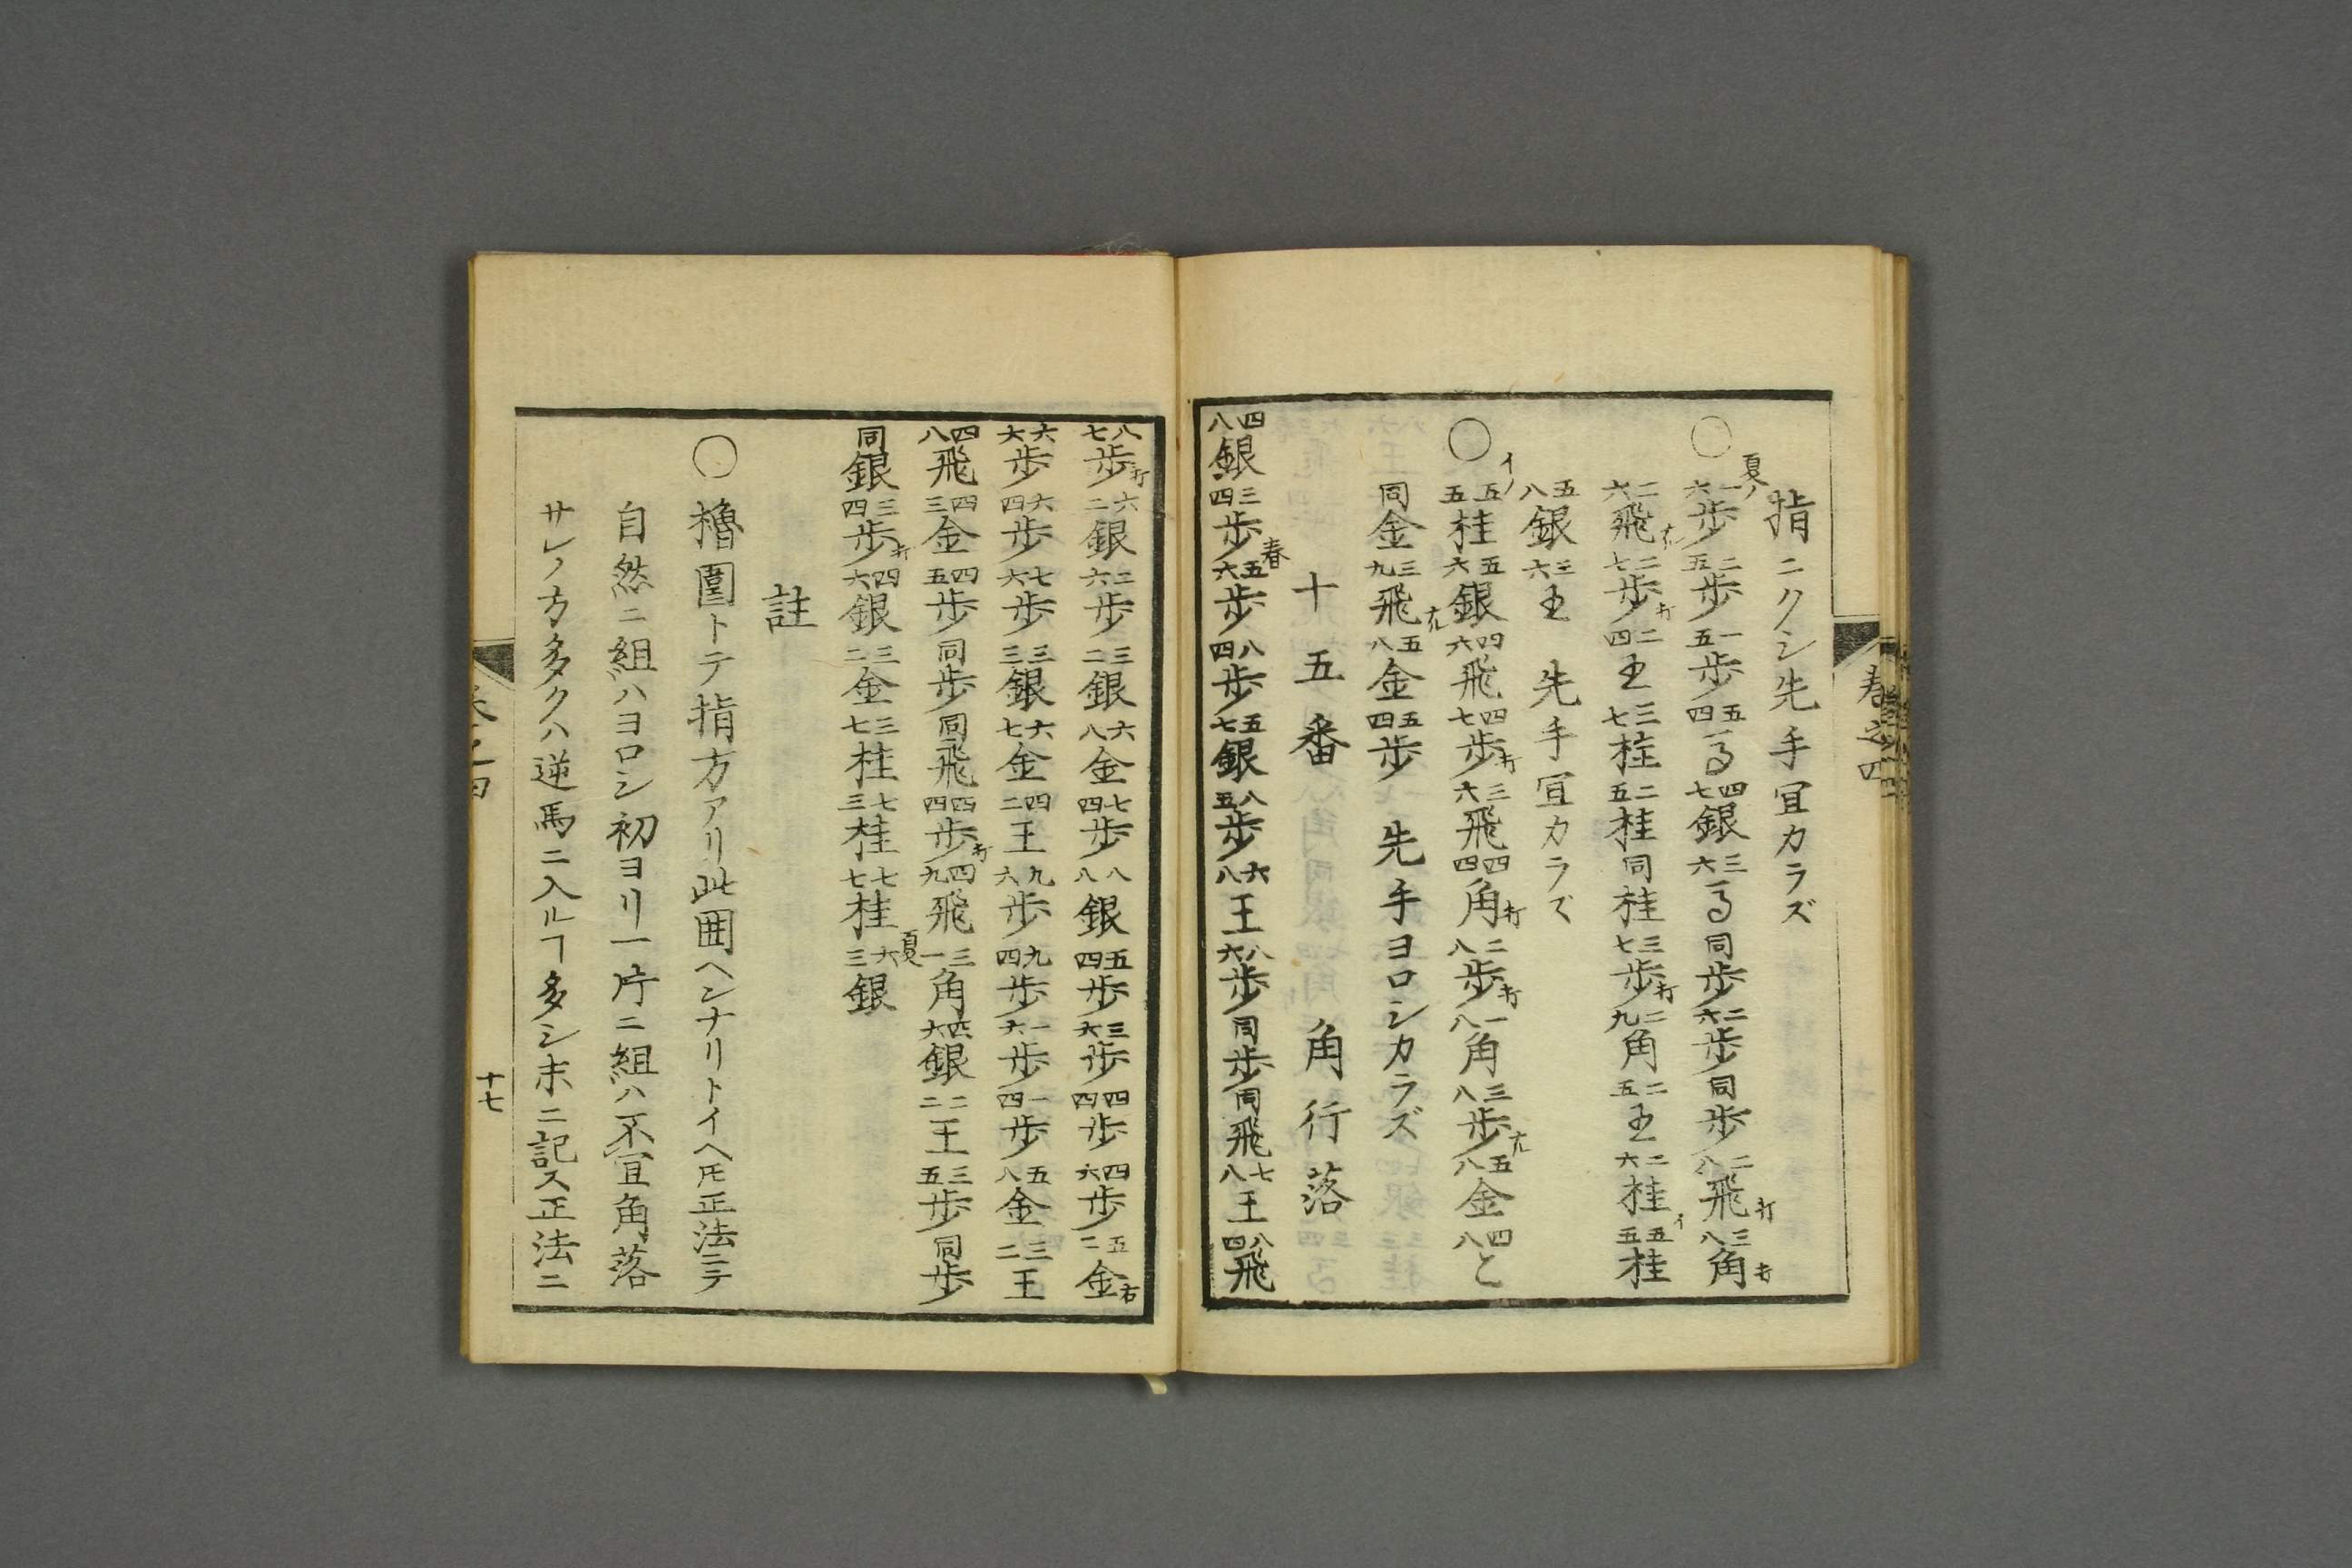 指ニクシ先手宜カラズ
○夏ノ一六歩二五歩一五歩五四る四七銀三六る同歩二六歩同歩二八飛打三八角打
二六飛ナル二七歩打二四王三七桂二五桂同桂三七歩打二九角二五王二六桂イ五五桂
五八銀三六王 先手宜カラズ
○イノ五五桂五六銀四六飛四七歩打三六飛四四角打二八歩打一八角三八歩ナル五八金四八と
同金三九飛ナル五八金五四歩 先手ヨロシカラズ
十五番 角行落
四八銀三四歩春五六歩八四歩五七銀八五歩六八王八六歩同歩同飛七八王八四飛
巻之四
八七歩打六二銀二六歩三二銀六八金七四歩八八銀五四歩三六歩四四歩四六歩五二金右
六六歩六四歩七六歩三三銀六七金四二王九六歩九四歩一六歩一四歩五八金三二王
四八飛四三金四五歩同歩同飛四四歩打四九飛三一角四六銀二二王三五歩同歩
同銀三四歩打四六銀三二金三七桂七三桂七七桂夏六三銀
註
○櫓圍トテ指方アリ此囲ヘンナリトイヘ𪜈正法ニテ
自然ニ組ハヨロシ初ヨリ一片ニ組ハ不宜角落
サレノ方多クハ逆馬ニ入ルヿ多シ末ニ記ス正法ニ
十七